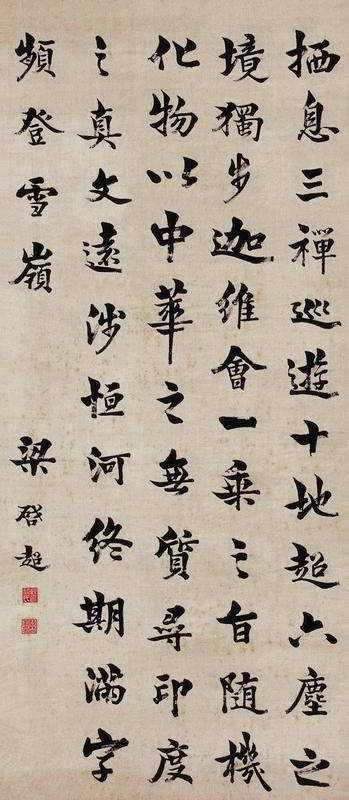 栖息三禪巡遊十地超六塵之
境獨步迦維會一乘之旨随機
化物以中華之無質尋印度
之真文遠涉恒河終期滿字
頻登雪嶺
梁啓超